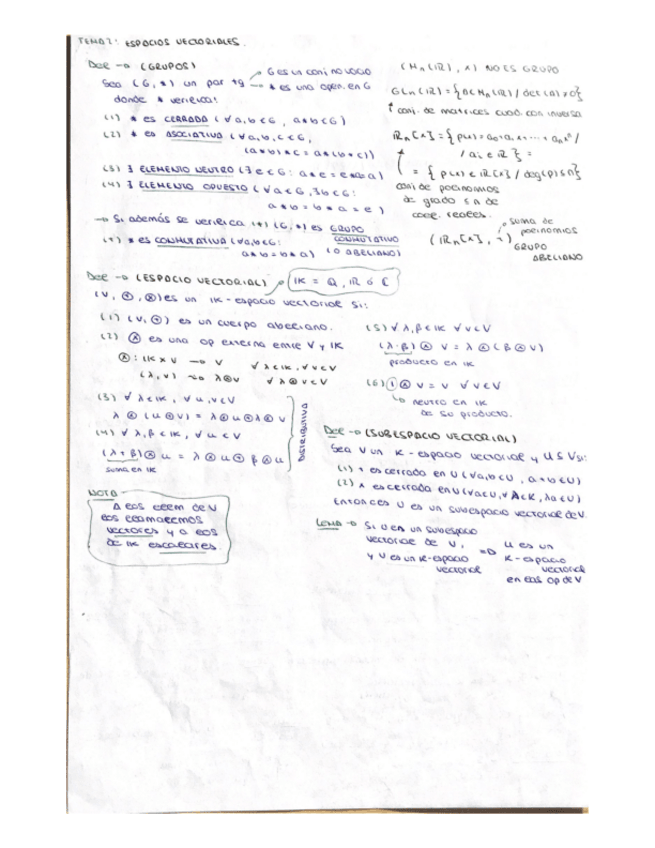 TEMA 2: ESPACIOS VECTORIALES.
DEF → (GRUPOS)
Sea (G, *) un par tq → G es un conj no vacío
→ * es una open. en G
donde * verifica:
(1) * es CERRADA (∀a,b∈G, a*b∈G)
(2) * es ASOCIATIVA (∀a,b,c∈G,
(a*b)*c = a*(b*c))
(3) ∃ ELEMENTO NEUTRO (∃e∈G: a*e = e*a = a)
(4) ∃ ELEMENTO OPUESTO (∀a∈G, ∃b∈G:
a*b = b*a = e)
→ Si además se verifica (*) (G,*) es GRUPO
CONMUTATIVO
(*) * es CONMUTATIVA (∀a,b∈G:
a*b = b*a) (O ABELIANO)
(Mn(ℝ), ·) NO ES GRUPO
GLn(ℝ) = {A∈Mn(ℝ) / det(A)≠0}
↑ conj. de matrices cuad. con inversa
ℝn[x] = {p(x) = a0 + a1x + ··· + anxⁿ /
/ ai ∈ ℝ} =
= {p(x) ∈ ℝ[x] / deg(p) ≤ n}
conj de polinomios
de grado ≤ n de
coef. reales.
(ℝn[x], +) → suma de
polinomios
GRUPO
ABELIANO
DEF → (ESPACIO VECTORIAL) 𝕂 = ℚ, ℝ ó ℂ
(V, ⊕, ⊗) es un 𝕂-espacio vectorial si:
(1) (V, ⊕) es un cuerpo abeliano.
(2) ⊗ es una op externa entre V y 𝕂
⊗: 𝕂 × V → V ∀λ∈𝕂, ∀v∈V
(λ, v) → λ⊗v ∀λ⊗v∈V
(3) ∀λ∈𝕂, ∀u,v∈V
λ⊗(u⊕v) = λ⊗u⊕λ⊗v
(4) ∀λ,β∈𝕂, ∀u∈V
(λ+β)⊗u = λ⊗u⊕β⊗u
suma en 𝕂
DISTRIBUTIVA
(5) ∀λ,β∈𝕂 ∀v∈V
(λ·β)⊗v = λ⊗(β⊗v)
producto en 𝕂
(6) 1⊗v = v ∀v∈V
↳ neutro en 𝕂
de su producto.
NOTA
A los elem de V
los llamaremos
vectores y a los
de 𝕂 escalares.
DEF → (SUBESPACIO VECTORIAL)
Sea V un K-espacio vectorial y U ⊆ V si:
(1) + es cerrada en U (∀a,b∈U, a+b∈U)
(2) × es cerrada en U (∀a∈U, ∀λ∈K, λa∈U)
Entonces U es un subespacio vectorial de V.
LEMA → Si U es un subespacio
vectorial de V,
y V es un K-espacio
vectorial
⇒ U es un
K-espacio
vectorial
en las op de V